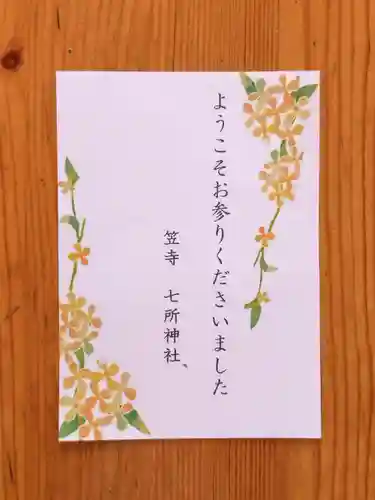 ようこそお参りくださいました
笠寺 七所神社、